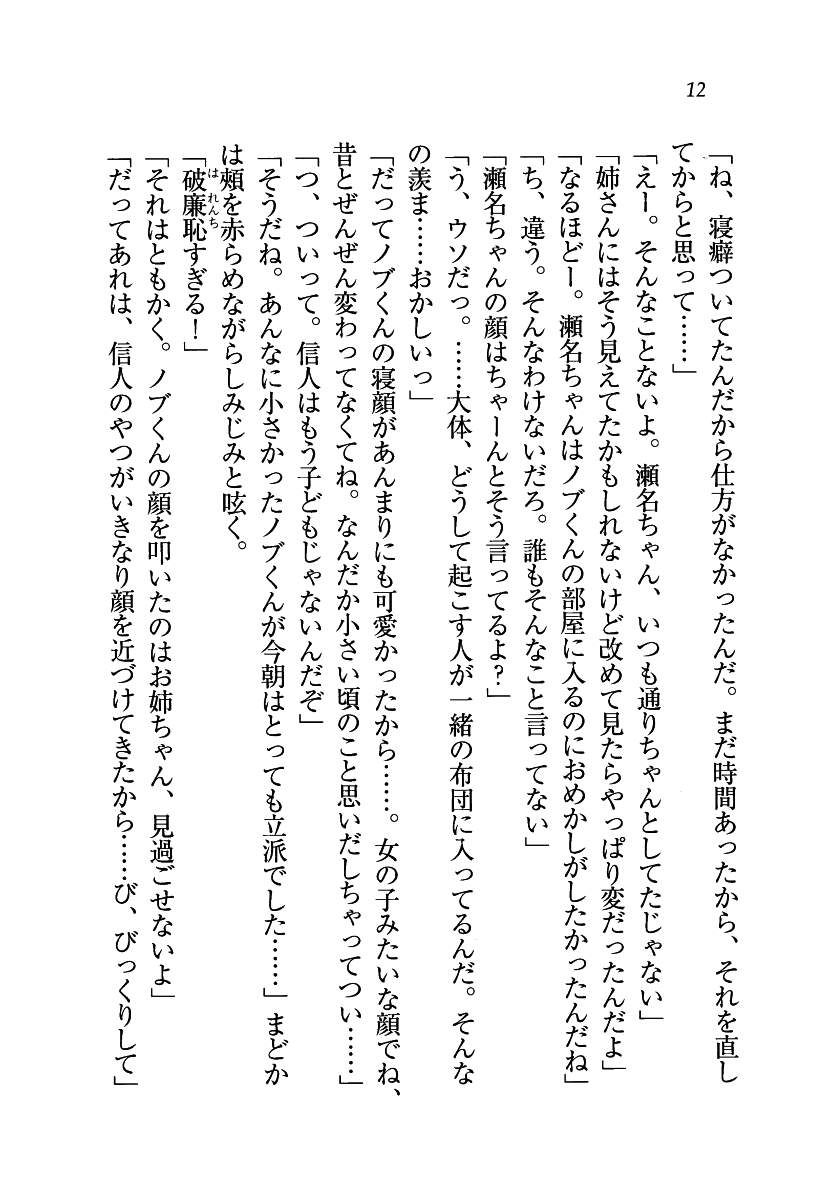 12
「ね、寝癖ついてたんだから仕方がなかったんだ。まだ時間あったから、それを直し
てからと思って……」
「えー。そんなことないよ。瀬名ちゃん、いつも通りちゃんとしてたじゃない」
「姉さんにはそう見えてたかもしれないけど改めて見たらやっぱり変だったんだよ」
「なるほどー。瀬名ちゃんはノブくんの部屋に入るのにおめかしがしたかったんだね」
「ち、違う。そんなわけないだろ。誰もそんなこと言ってない」
「瀬名ちゃんの顔はちゃーんとそう言ってるよ？」
「う、ウソだっ。……大体、どうして起こす人が一緒の布団に入ってるんだ。そんな
の羨ま……おかしいっ」
「だってノブくんの寝顔があんまりにも可愛かったから……。女の子みたいな顔でね、
昔とぜんぜん変わってなくてね。なんだか小さい頃のこと思いだしちゃってつい……」
「つ、ついって。信人はもう子どもじゃないんだぞ」
「そうだね。あんなに小さかったノブくんが今朝はとっても立派でした……」まどか
は頬を赤らめながらしみじみと呟く。
「破廉恥すぎる！」
はれんち
「それはともかく。ノブくんの顔を叩いたのはお姉ちゃん、見過ごせないよ」
「だってあれは、信人のやつがいきなり顔を近づけてきたから……び、びっくりして」